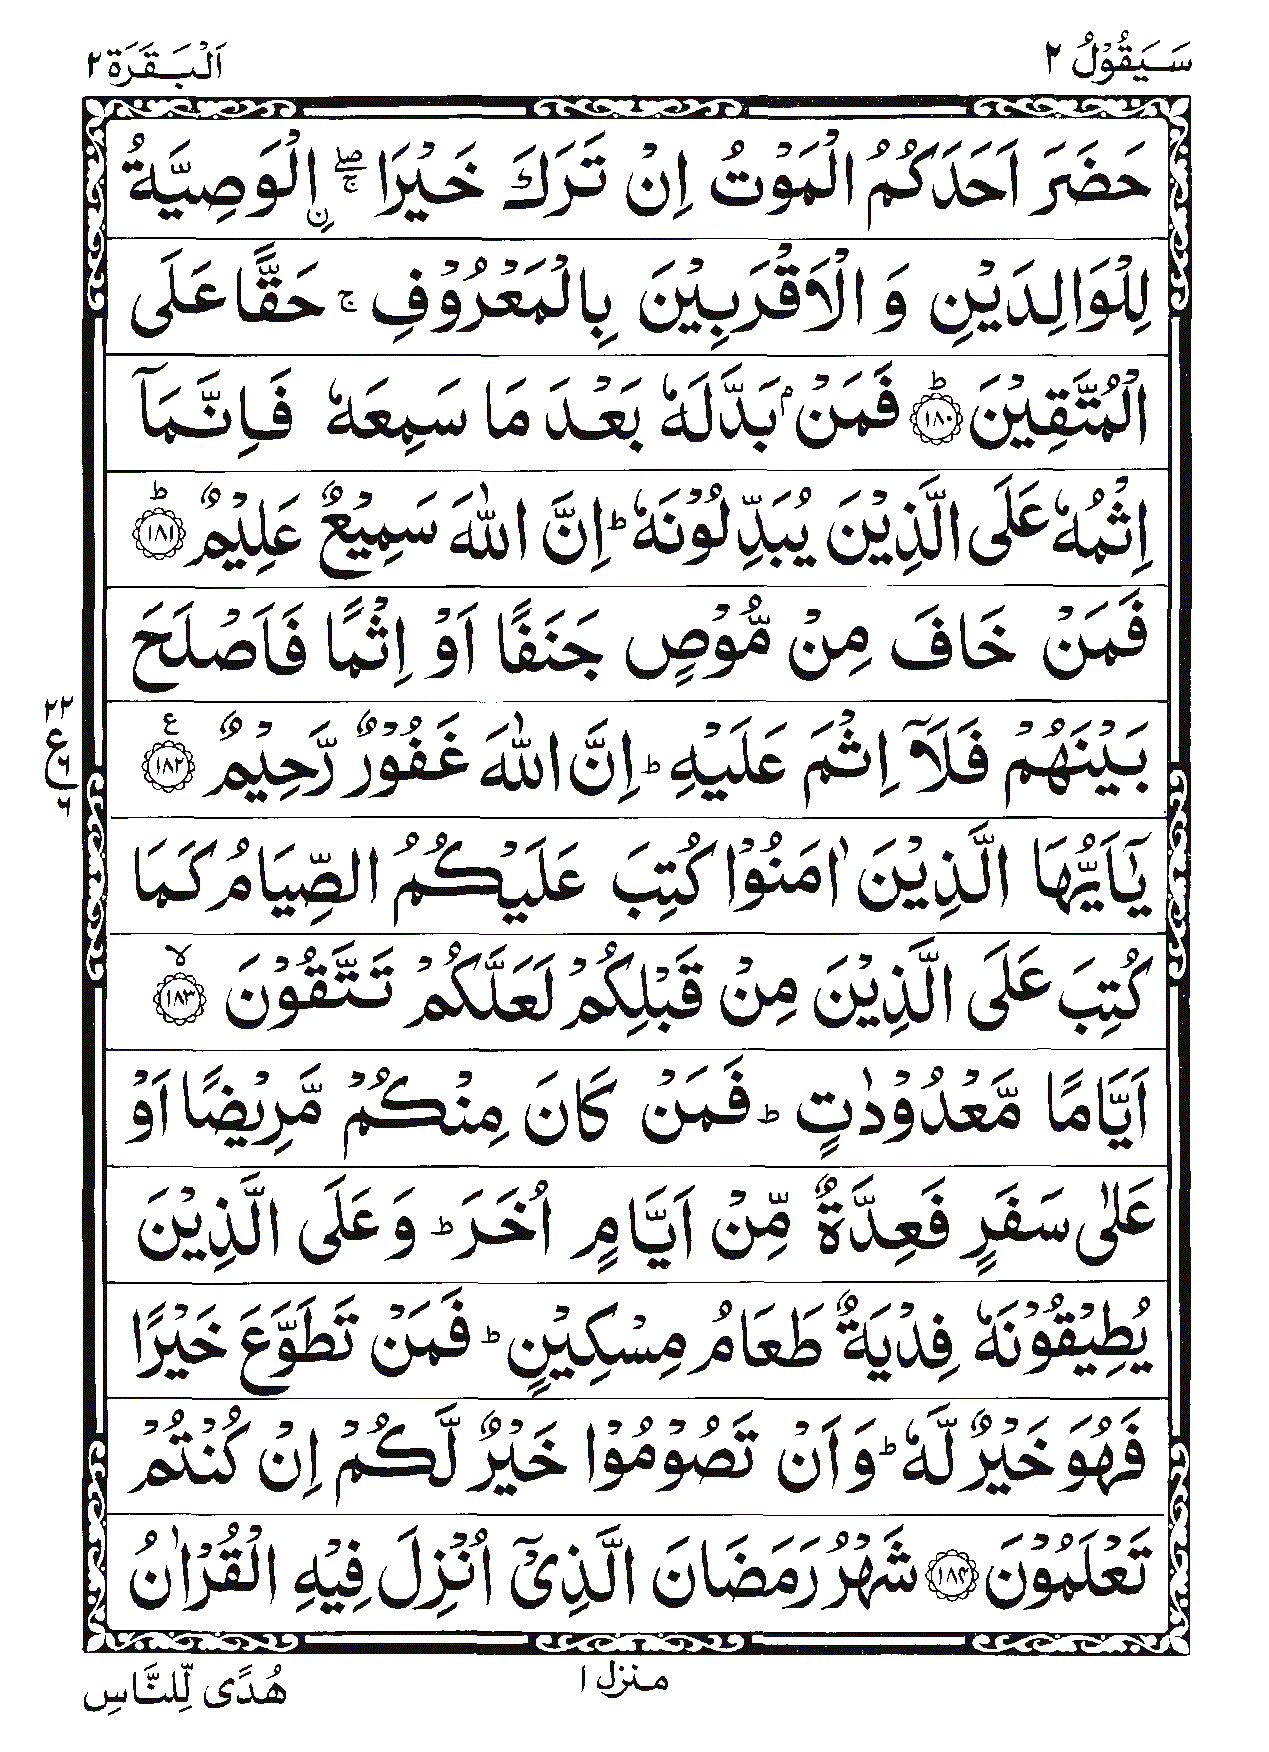 سَيَقُوْلُ ٢
اَلْبَقَرَة ٢
حَضَرَ اَحَدَكُمُ الْمَوْتُ اِنْ تَرَكَ خَيْرَا ۚۖ اࣙلْوَصِيَّةُ
لِلْوَالِدَيْنِ وَ الْاَقْرَبِيْنَ بِالْمَعْرُوْفِ ۚ حَقًّا عَلَى
الْمُتَّقِيْنَ ؕ ﴿۱۸۰﴾ فَمَنْۢ بَدَّلَهٗ بَعْدَ مَا سَمِعَهٗ فَاِنَّمَاۤ
اِثْمُهٗ عَلَى الَّذِيْنَ يُبَدِّلُوْنَهٗ ؕ اِنَّ اللّٰهَ سَمِيْعٌ عَلِيْمٌ ؕ ﴿۱۸۱﴾
فَمَنْ خَافَ مِنْ مُّوْصٍ جَنَفًا اَوْ اِثْمًا فَاَصْلَحَ
بَيْنَهُمْ فَلَاۤ اِثْمَ عَلَيْهِ ؕ اِنَّ اللّٰهَ غَفُوْرٌ رَّحِيْمٌ ع ﴿۱۸۲﴾
۲۲
ع
۶
۶
يٰۤاَيُّهَا الَّذِيْنَ اٰمَنُوْا كُتِبَ عَلَيْكُمُ الصِّيَامُ كَمَا
كُتِبَ عَلَى الَّذِيْنَ مِنْ قَبْلِكُمْ لَعَلَّكُمْ تَتَّقُوْنَ ۙ ﴿۱۸۳﴾
اَيَّامًا مَّعْدُوْدٰتٍ ؕ فَمَنْ كَانَ مِنْكُمْ مَّرِيْضًا اَوْ
عَلٰى سَفَرٍ فَعِدَّةٌ مِّنْ اَيَّامٍ اُخَرَ ؕ وَ عَلَى الَّذِيْنَ
يُطِيْقُوْنَهٗ فِدْيَةٌ طَعَامُ مِسْكِيْنٍ ؕ فَمَنْ تَطَوَّعَ خَيْرًا
فَهُوَ خَيْرٌ لَّهٗ ؕ وَ اَنْ تَصُوْمُوْا خَيْرٌ لَّكُمْ اِنْ كُنْتُمْ
تَعْلَمُوْنَ ﴿۱۸۴﴾ شَهْرُ رَمَضَانَ الَّذِيْۤ اُنْزِلَ فِيْهِ الْقُرْاٰنُ
منزل ۱
هُدًى لِّلنَّاسِ